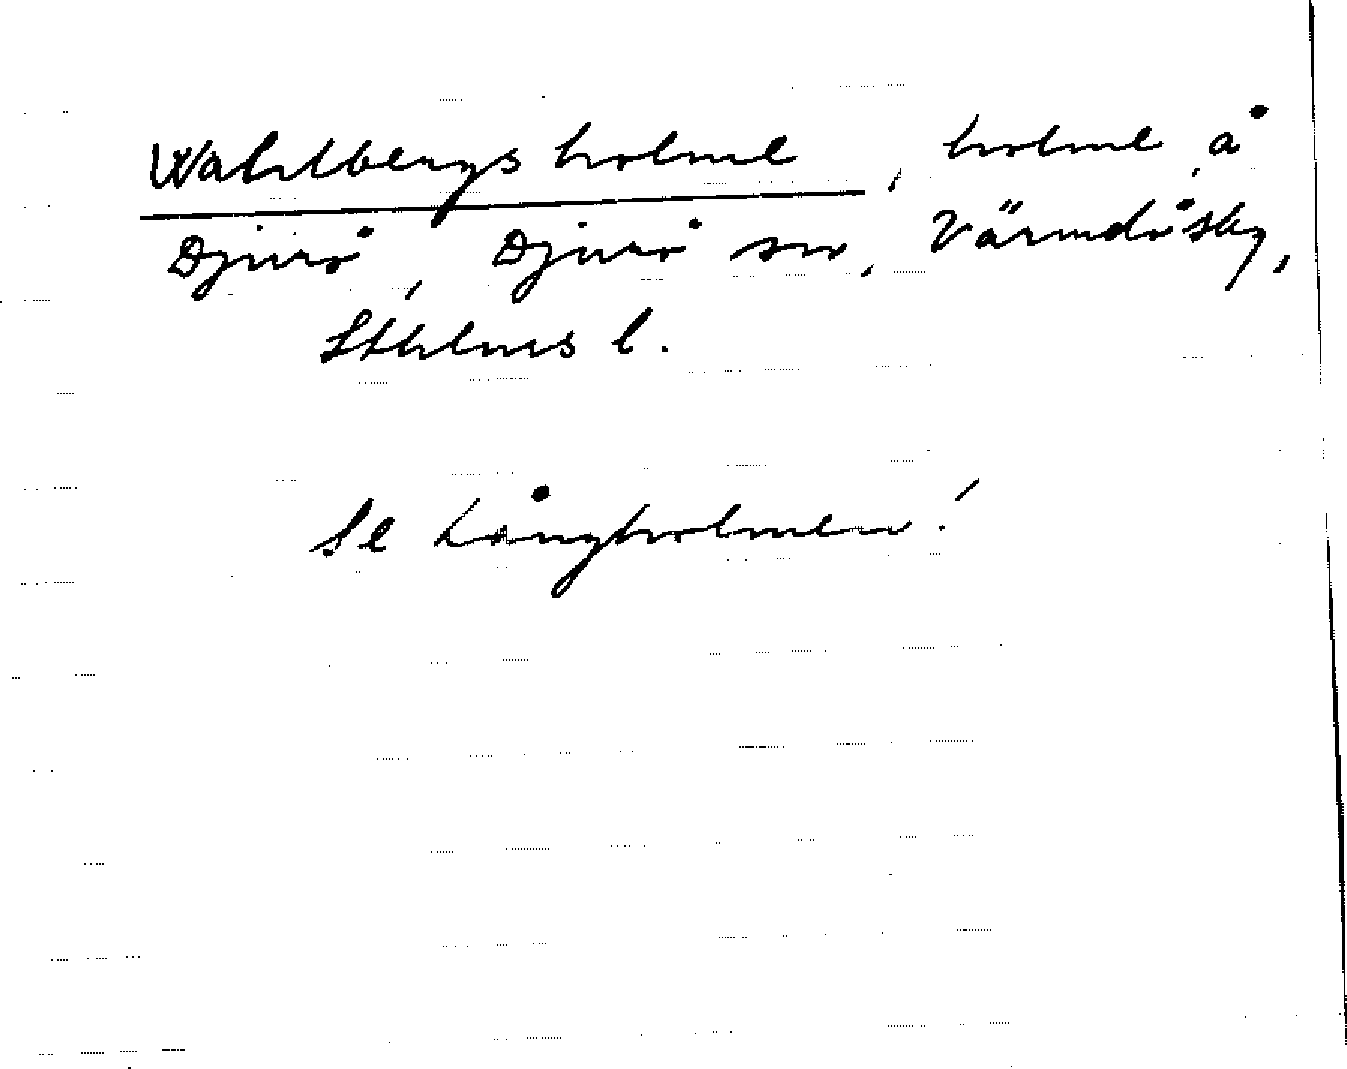 Wahlbergsholme, holme å
Djurö, Djurö sn, Värmdö skg,
Sthlms l.
Se Långholmen!